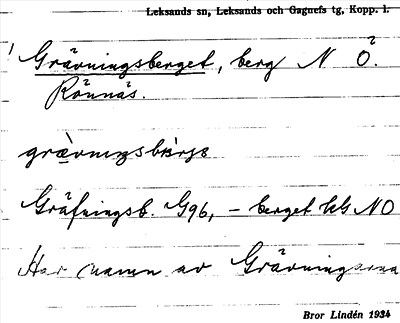 Leksands sn, Leksands och Gagnefs tg, Kopp. l.
Grävningsberget, berg N Ö.
Rönnäs.
grævningsbärge
Gräfningsb. G96, – berget kls NO
Har namn av Grävningarna
Bror Lindén 1934